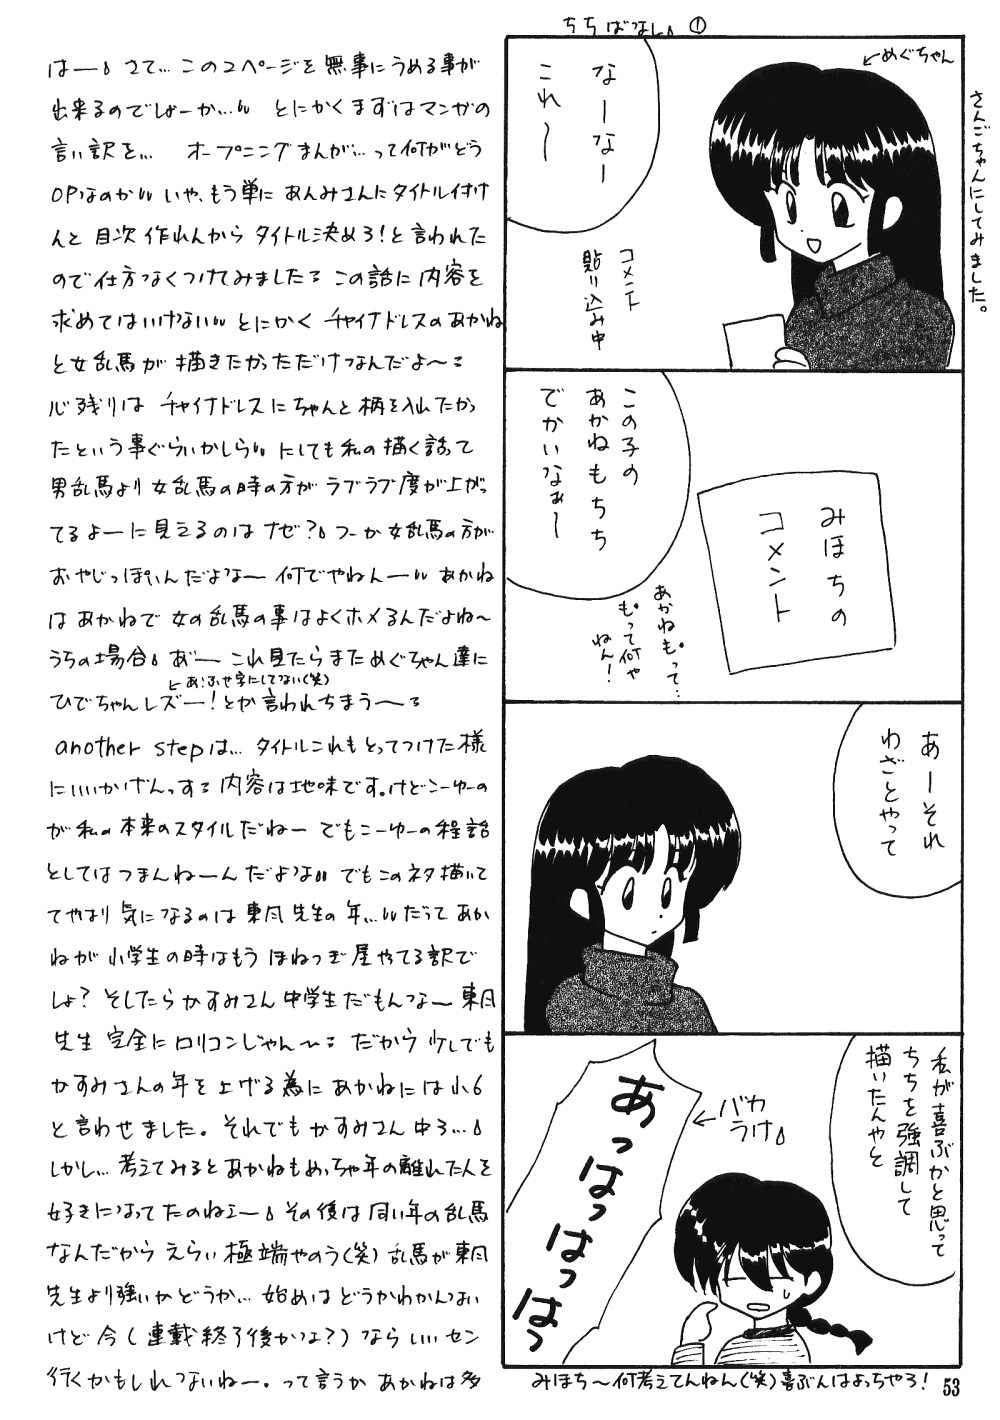 ちちばなし ①
は―。さて…このスペースを無事にうめる事が
出来るのでしょーか…。とにかくまずはマンガの
言い訳を… オープニングまんが…って何がどう
OPなのか。いや、もう単にあんみさんにタイトル付け
んと目次作れんからタイトル決めろ!と言われた
ので仕方なくつけてみました。この話に内容を
求めてはいけない。とにかくチャイナドレスのあかね
と女乱馬が描きたかっただけなんだよ〜。
心残りはチャイナドレスにちゃんと柄を入れたかっ
たという事ぐらいかしら。にしても私の描く話って
男乱馬より女乱馬の時の方がラブラブ度が上がっ
てるよーに見えるのはナゼ?つーか女乱馬の方が
おやじっぽいんだよな―何でやねん―。あかね
はあかねで女の乱馬の事はよくホメるんだよね〜
うちの場合。あ゛― これ見たらまためぐちゃん達に
あ、ふせ字にしてない(笑)
ひでちゃんレズー!とか言われちまう〜。
another stepは…タイトルこれもとってつけた様
にいいかげんっす。内容は地味です。けどこーゆーの
が私の本来のスタイルだねー でもこーゆーの程話
としてはつまんねーんだよな。でもこのネタ描いて
てやはり気になるのは東風先生の年…。だってあか
ねが小学生の時はもうほねつぎ屋やてる訳で
しょ?そしたらかすみさん中学生だもんな―東風
先生完全にロリコンじゃん〜。だから少しでも
かすみさんの年を上げる為にあかねには小6
と言わせました。それでもかすみさん中3…。
しかし…考えてみるとあかねもめっちゃ年の離れた人を
好きになってたのねェ―。その後は同い年の乱馬
なんだからえらい極端やのう(笑)乱馬が東風
先生より強いかどうか…始めはどうかわかんない
けど今(連載終了後かな?)ならいいセン
行くかもしれないねー。って言うかあかねは多
めぐちゃん
さんごちゃんにしてみました。
なーなー
これ〜
コメント
貼り込み中
この子の
あかねもちち
でかいなぁ〜
みほちの
コメント
あかねも。って…
も。って何や
ねん!
あーそれ
わざとやって
私が喜ぶかと思って
ちちを強調して
描いたんやと
バカ
うけ
あっはっはっはっ
みほち〜何考えてんねん(笑)喜ぶんはよっちゃろ!
53